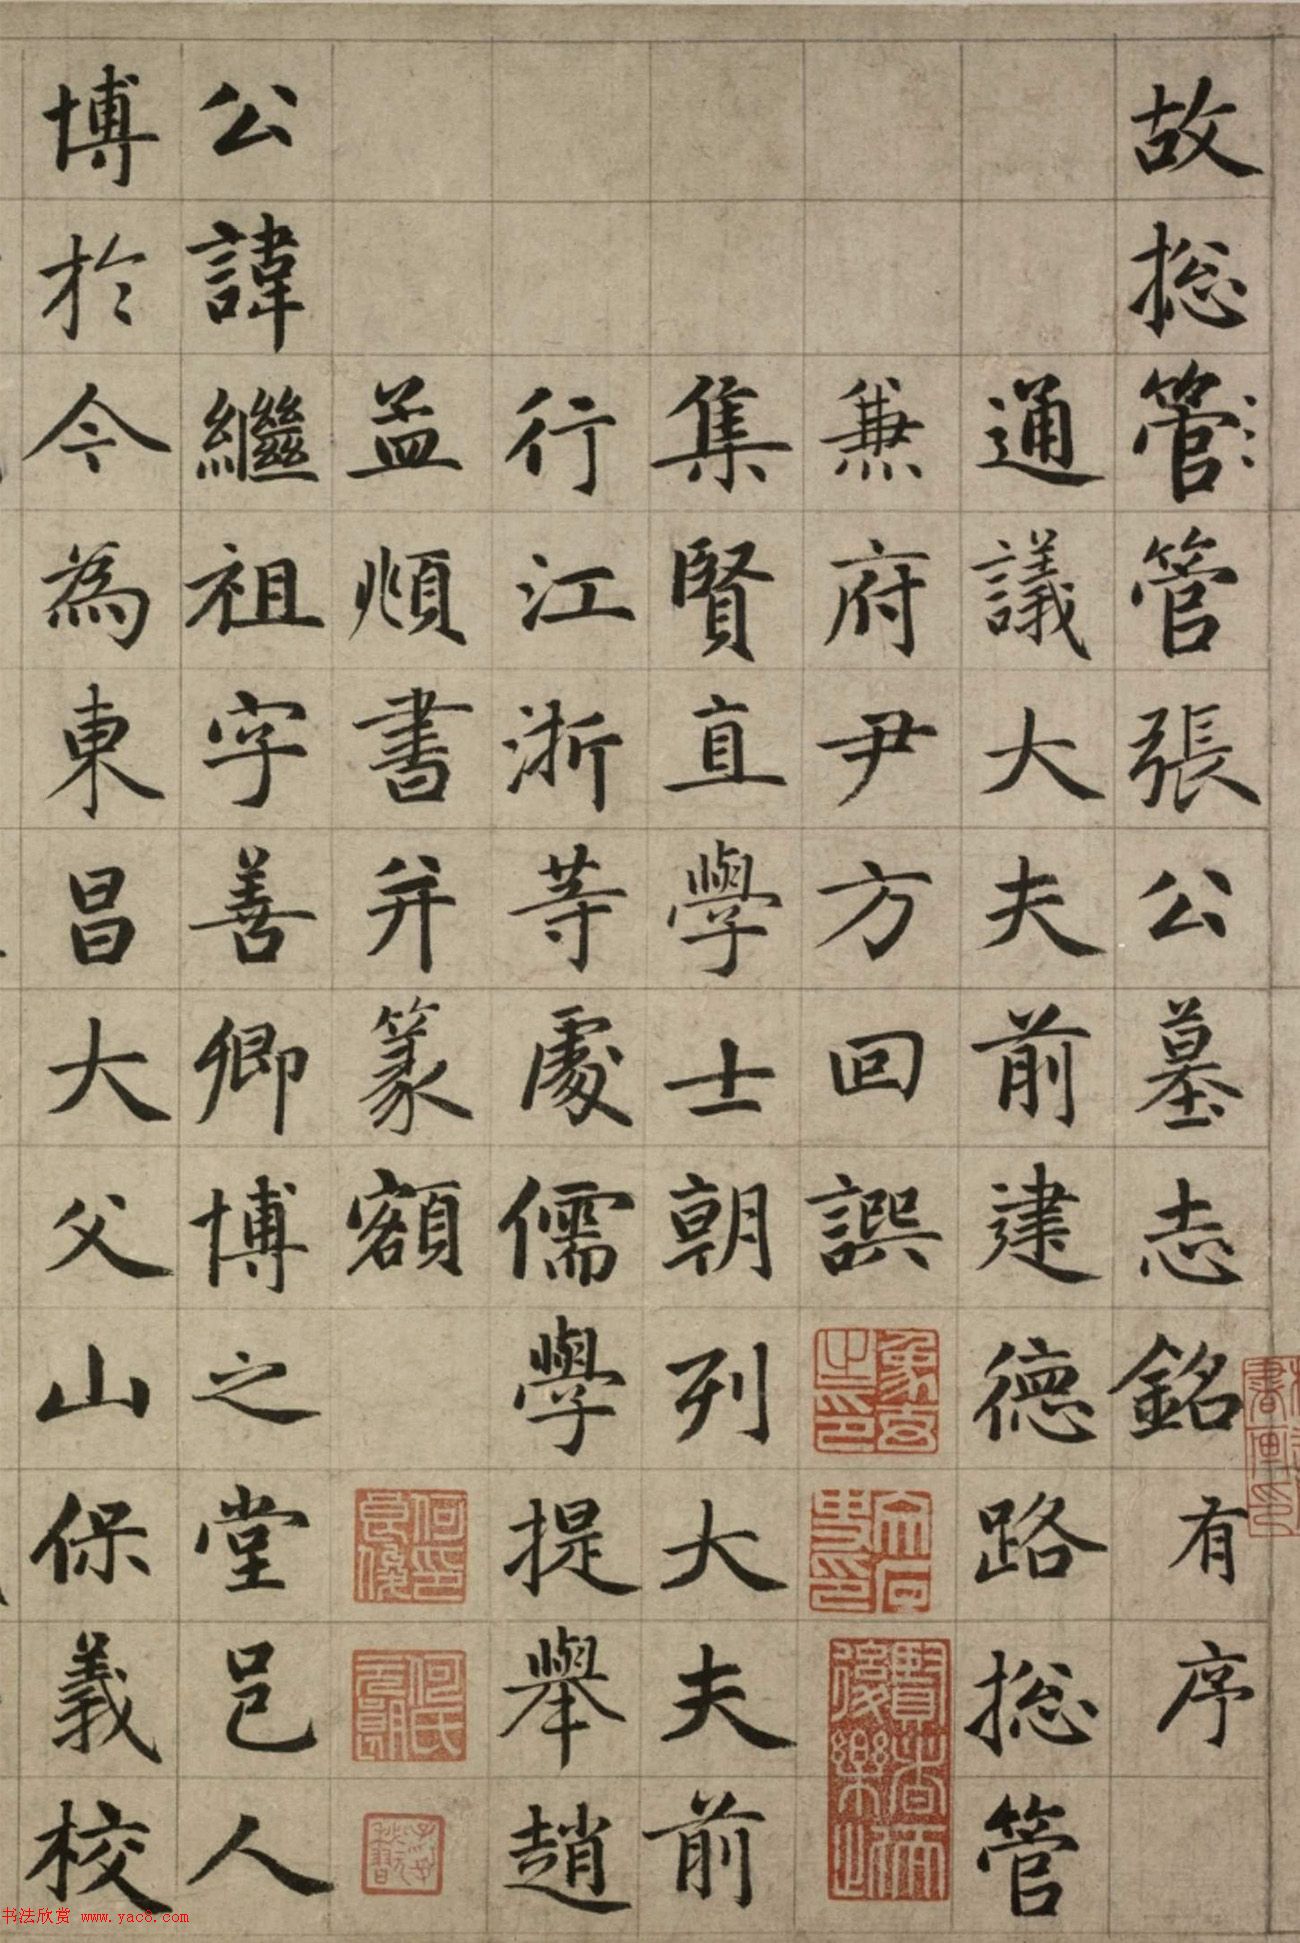 故捴管管張公墓志銘有序
通議大夫前建德路捴管
兼府尹方回譔
集賢直學士朝列大夫前
行江浙等處儒學提舉趙
孟頫書并篆額
公諱繼祖字善卿博之堂邑人
博於今為東昌大父山保義校
何氏元朗
书法欣赏 www.yac8.com